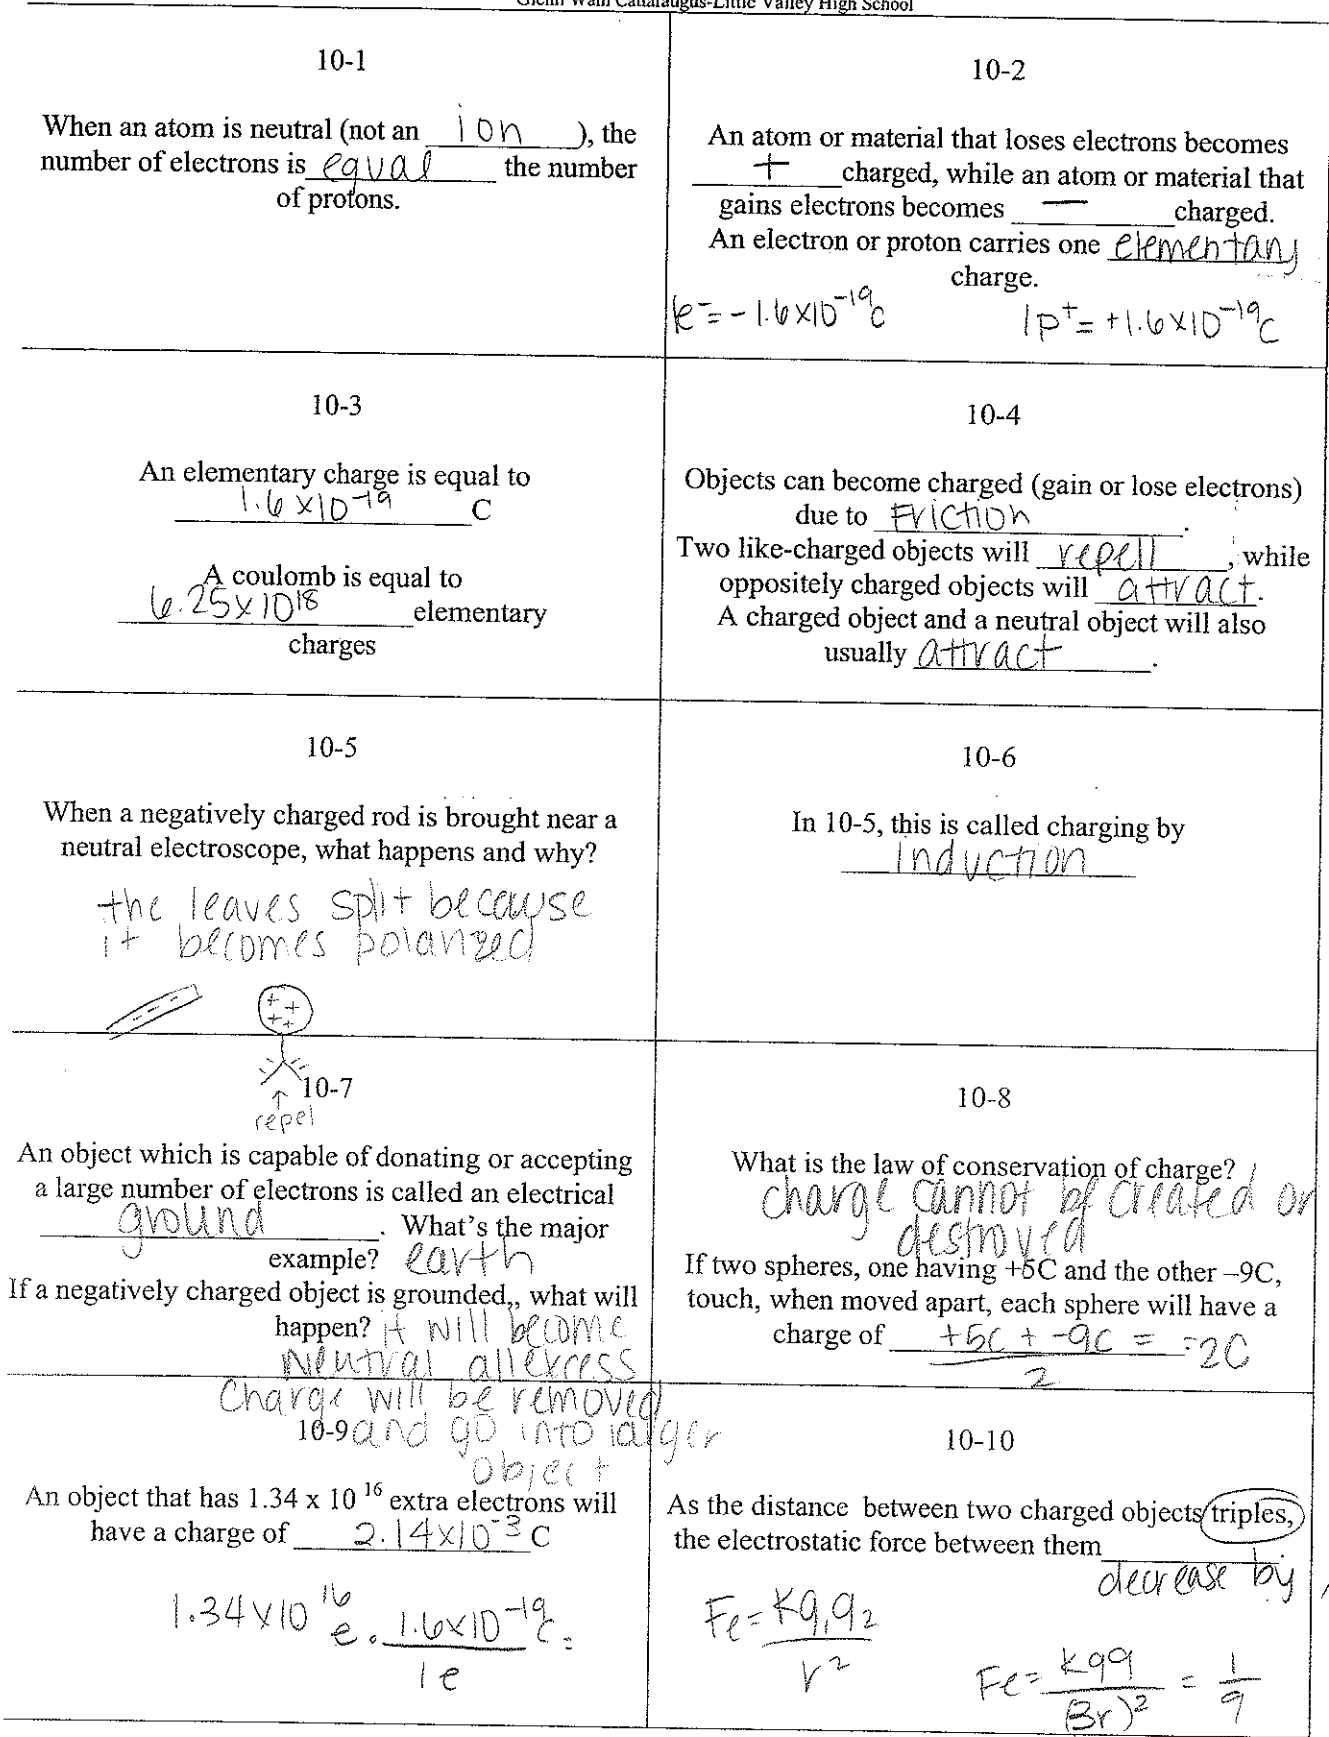 Glenn Wahl Cattaraugus-Little Valley High School
10-1
When an atom is neutral (not an ion ), the
number of electrons is equal the number
of protons.
10-2
An atom or material that loses electrons becomes
+ charged, while an atom or material that
gains electrons becomes — charged.
An electron or proton carries one elementary
charge.
1e⁻= -1.6x10⁻¹⁹C 1p⁺= +1.6x10⁻¹⁹C
10-3
An elementary charge is equal to
1.6 x10⁻¹⁹ C
A coulomb is equal to
6.25x10¹⁸ elementary
charges
10-4
Objects can become charged (gain or lose electrons)
due to Friction.
Two like-charged objects will repell, while
oppositely charged objects will attract.
A charged object and a neutral object will also
usually attract.
10-5
When a negatively charged rod is brought near a
neutral electroscope, what happens and why?
the leaves split because
it becomes polarized
- - -
+ +
+ +
repel
10-6
In 10-5, this is called charging by
induction
10-7
An object which is capable of donating or accepting
a large number of electrons is called an electrical
ground. What's the major
example? earth
If a negatively charged object is grounded,, what will
happen? it will become
neutral all excess
charge will be removed
and go into larger
object
10-8
What is the law of conservation of charge?
charge cannot be created or
destroyed
If two spheres, one having +5C and the other –9C,
touch, when moved apart, each sphere will have a
charge of +5C + -9C = -2C
2
10-9
An object that has 1.34 x 10 ¹⁶ extra electrons will
have a charge of 2.14x10⁻³ C
1.34x10¹⁶ e . 1.6x10⁻¹⁹C =
1e
10-10
As the distance between two charged objects triples,
the electrostatic force between them
decrease by
Fe= Kq₁q₂
r²
Fe= kqq = 1
(3r)² 9